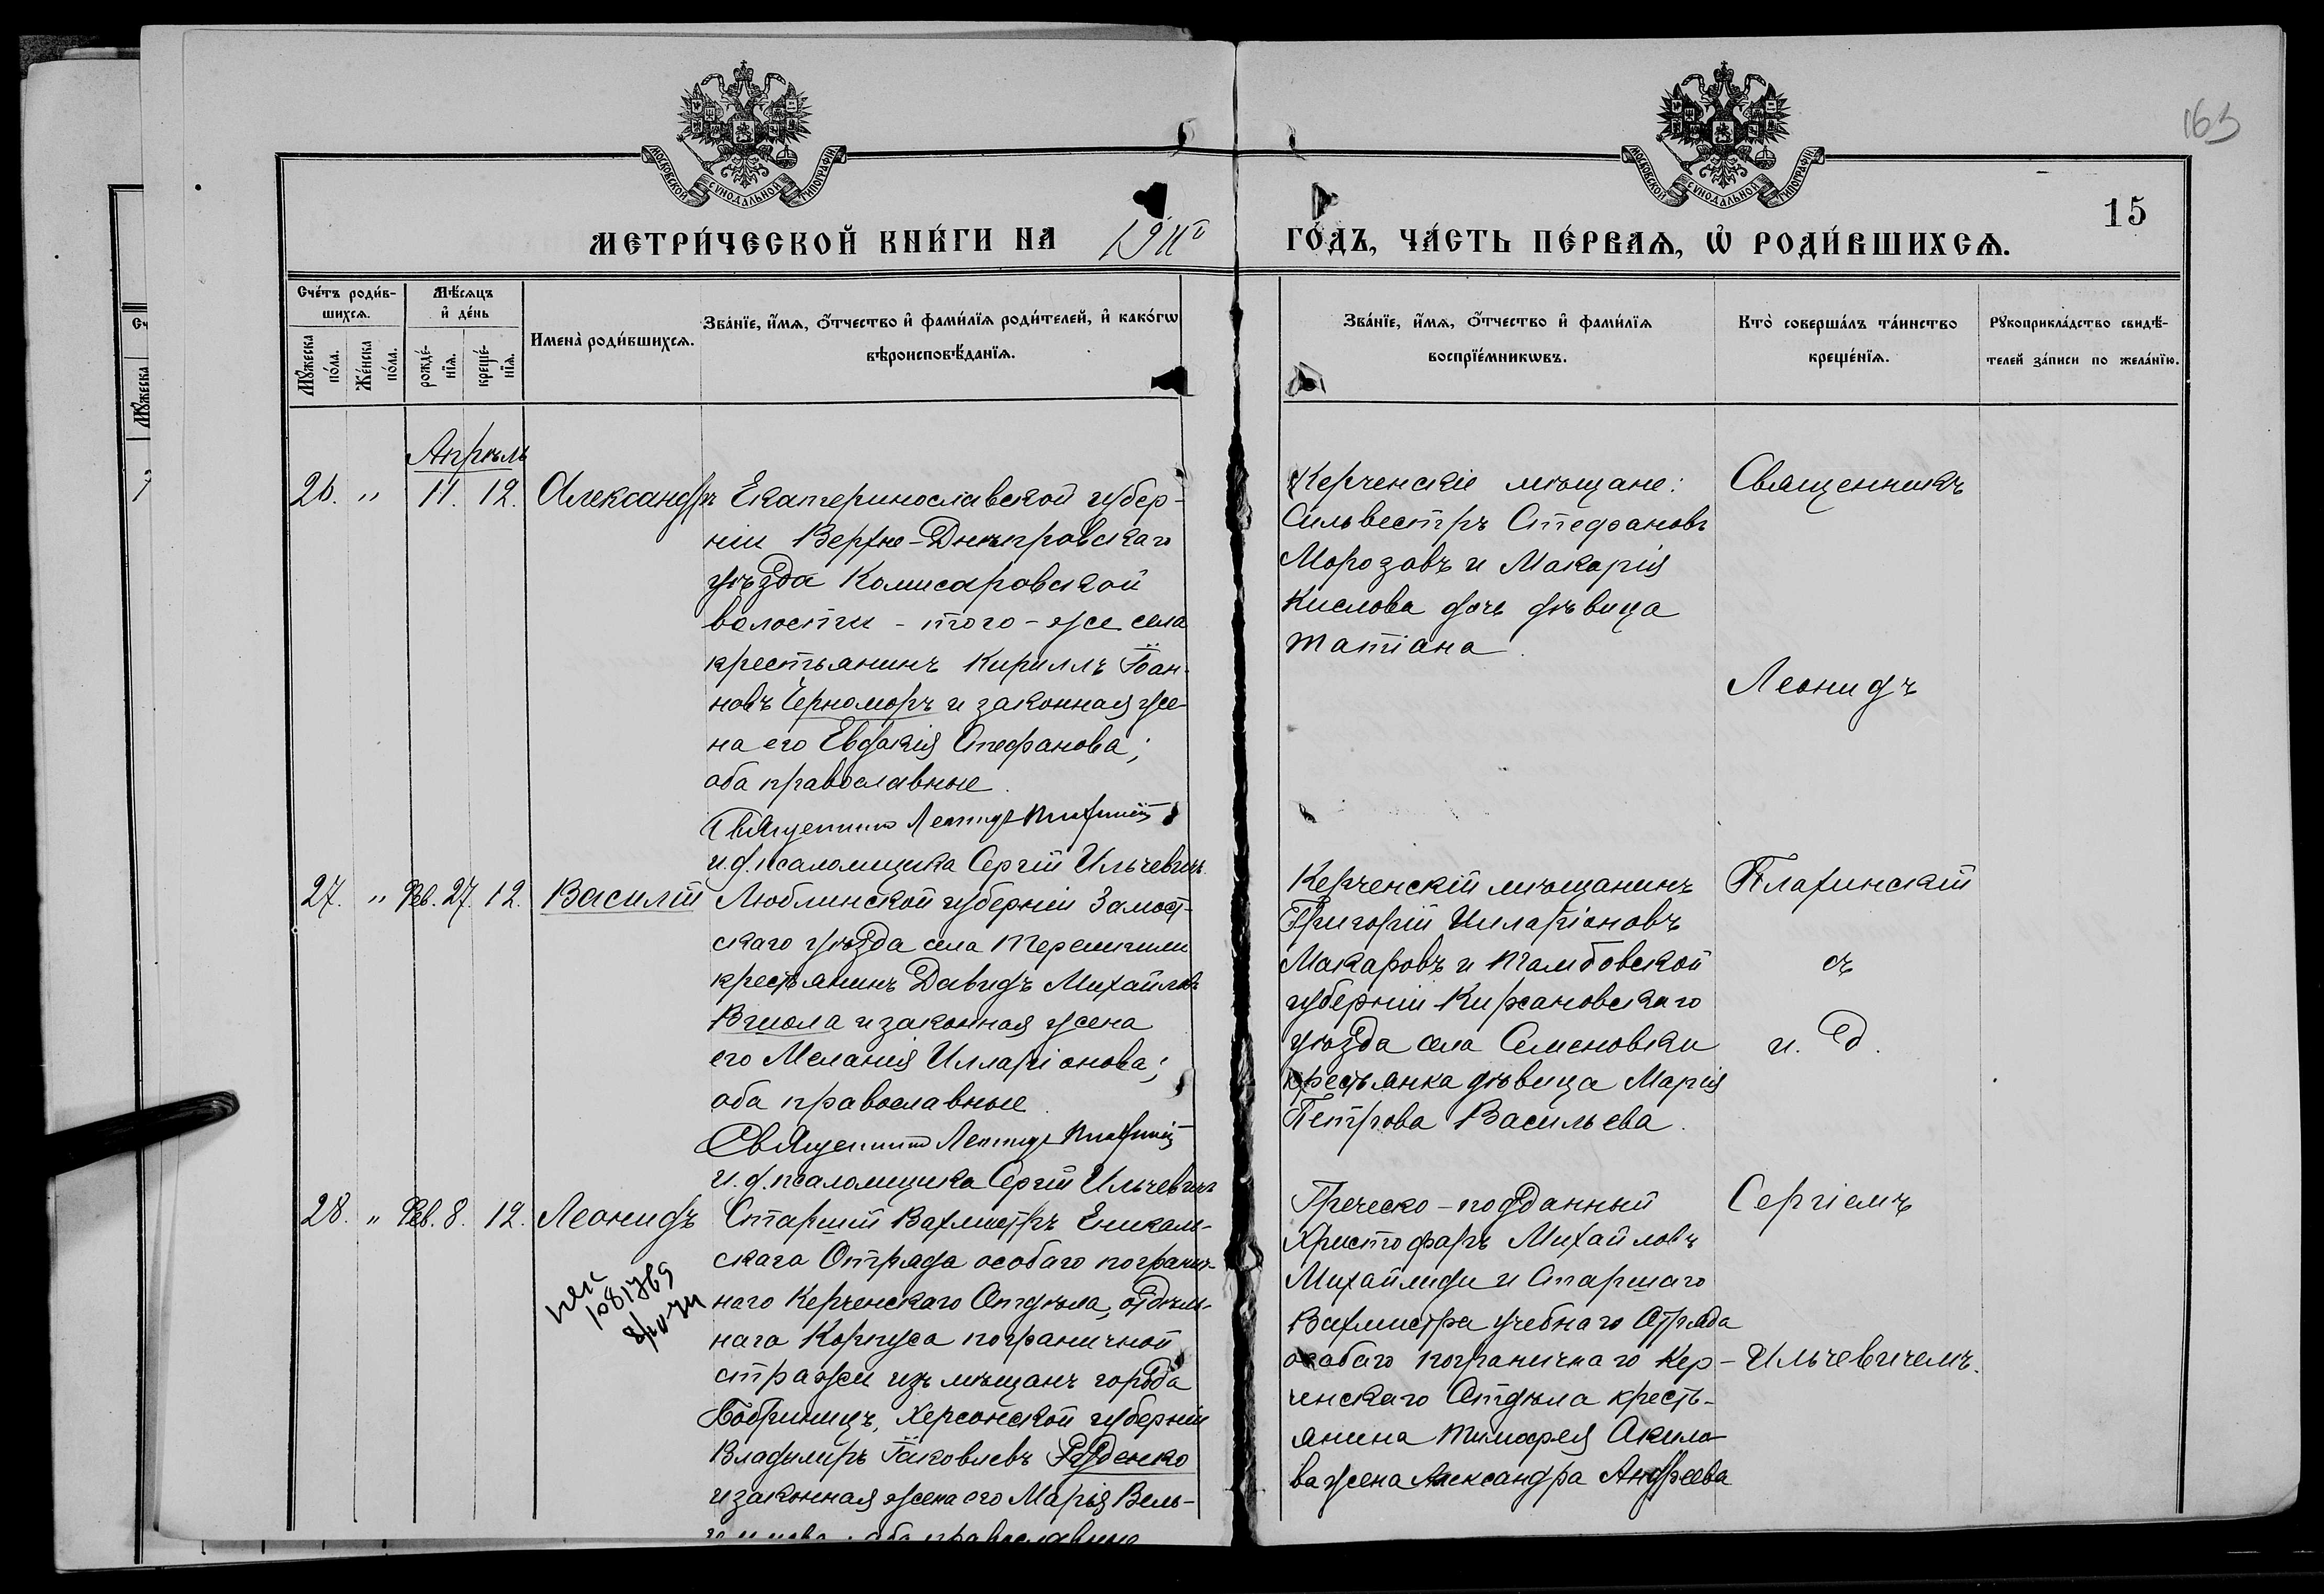 163
15
МОСКОВСКОЙ СѴНОДАЛЬНОЙ ТИПОГРАФІИ
МОСКОВСКОЙ СѴНОДАЛЬНОЙ ТИПОГРАФІИ
МЕТРИ́ЧЕСКОЙ КНИ́ГИ НА 1911й ГО́ДЪ, ЧА́СТЬ ПЕ́РВАѦ, Ѡ҆ РОДИ́ВШИХСѦ.
Сче́тъ роди́в-
шихсѧ.
Мꙋ́жеска по́ла.
Же́нска по́ла.
Мѣ́сѧцъ
и҆ де́нь
рожде́-
нїѧ.
креще́-
нїѧ.
Имена̀ роди́вшихсѧ.
Зва́нїе, и҆́мѧ, ѻ҆́тчество и҆ фами́лїѧ роди́телей, и҆ како́гѡ
вѣроисповѣ́данїѧ.
Зва́нїе, и҆́мѧ, ѻ҆́тчество и҆ фами́лїѧ
воспрїе́мникѡвъ.
Кто̀ соверша́лъ та́инство
креще́нїѧ.
Рꙋкоприкла́дство свидѣ́-
телей за́писи по жела́нїю.
Апрѣль
26. " 11. 12. Александръ
Екатеринославской губер-
ніи Верхне-Днѣпровскаго
уѣзда Комисаровской
волости - того-же села
крестьянинъ Кириллъ Іоан-
новъ Черноморъ и законная же-
на его Евдокія Стефанова;
оба православные.
Священникъ Леонидъ
и.д. псаломщика Сергій Ильчевичъ.
Керченскіе мѣщане:
Сильвестръ Стефановъ
Морозовъ и Макарія
Кислова дочь дѣвица
Татіана.
Священникъ
Леонидъ
27. " Фев. 27. 12. Василій
Люблинской губерніи Замост-
скаго уѣзда села
крестьянинъ Давидъ Михайловъ
и законная жена
его Меланія Илларіонова;
оба православные.
Священникъ Леонидъ
и.д. псаломщика Сергій Ильчевичъ
Керченскій мѣщанинъ
Григорій Иларіоновъ
Макаровъ и Тамбовской
губерніи Кирсановскаго
уѣзда села Семеновки
крестьянка дѣвица Марія
Петрова Васильева.
Плахинскій
съ
и. д.
28. " Фев. 8. 12. Леонидъ
Старшій Вахмистръ Еникаль-
скаго Отряда особаго погранич-
наго Керченскаго Отдѣла, отдѣль-
наго Корпуса пограничной
стражи изъ мѣщанъ города
Бобринецъ, Херсонской губерніи
Владиміръ Іаковлевъ Руденко
и законная жена его Марія Вель-
оба православные
Греческо-подданный
Христофоръ Михайловъ
Михайлиди и Старшаго
Вахмистра учебнаго Отряда
особаго пограничнаго Кер-
ченскаго Отдѣла кресть-
янина Тимофея Акило-
ва жена Александра Андреева
Сергіемъ
Ильчевичемъ.